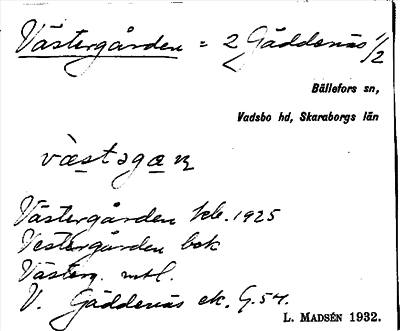 Västergården = 2 Gäddenäs 1/2
Bällefors sn,
Vadsbo hd, Skaraborgs län
Västergården 1925
Vestergården bok
Västerg. mtl.
V. Gäddenäs ek. G. 54.
L. MADSÉN 1932.